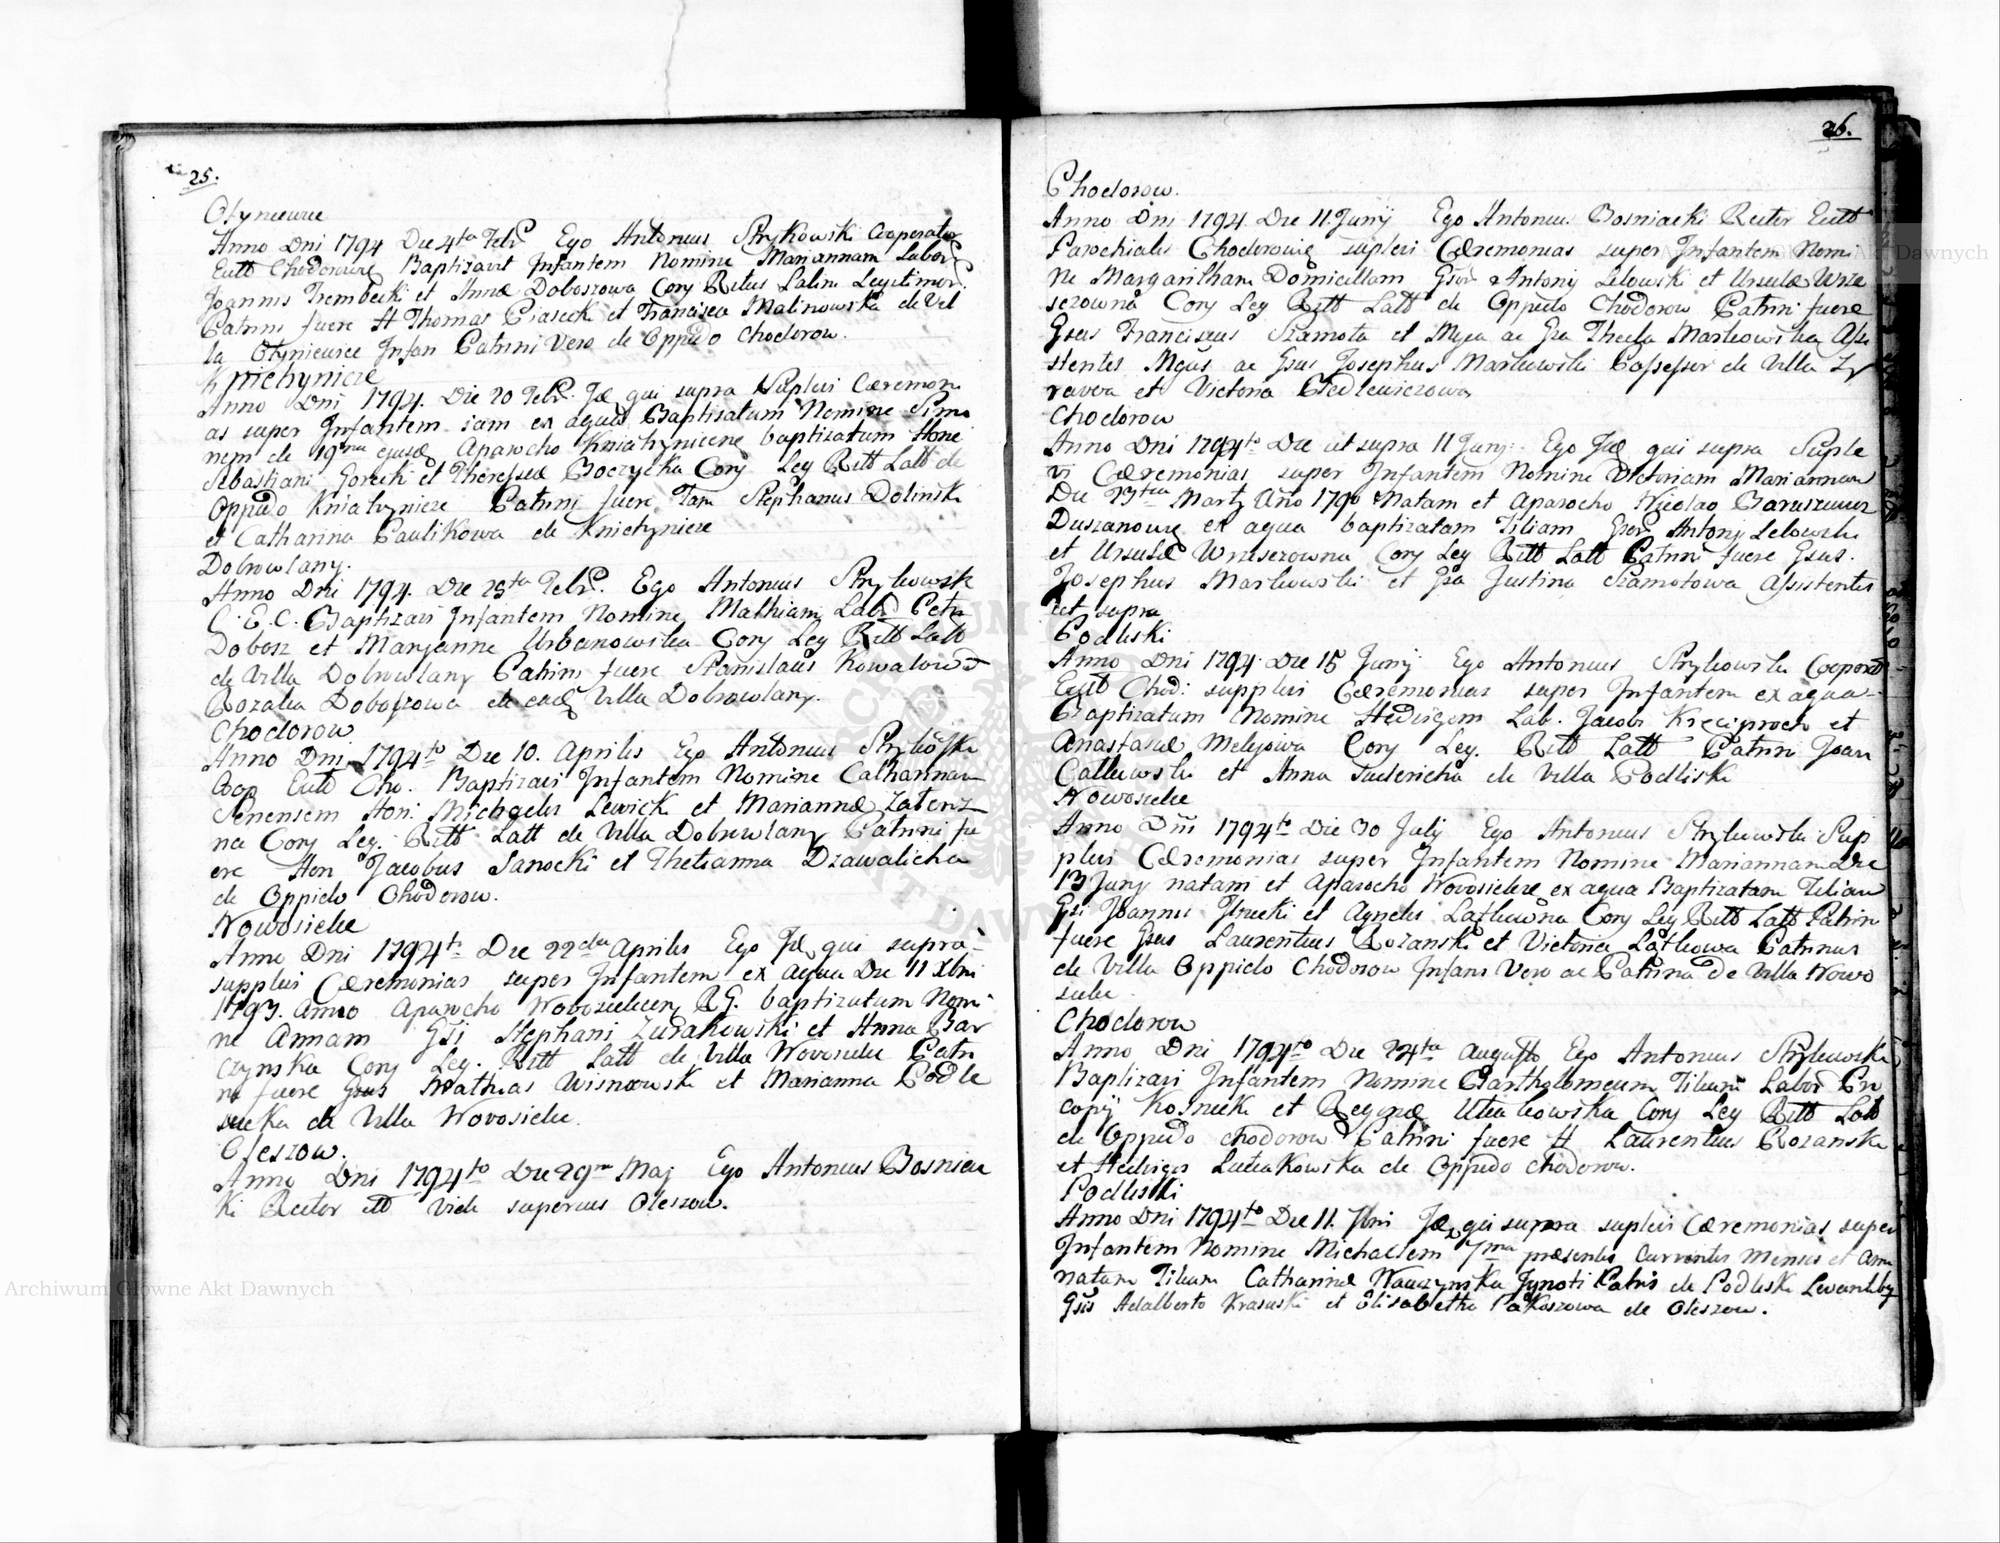 25.
Otyniewice
Anno Dni 1794 Die 4ta Febr Ego Antonius Strykowski Cooperator
Eccl Chodorovię Baptisavit Infantem Nomine Mariannam Labor
Joannis Trembecki et Annæ Doboszowa Conj Ritus Latin Legitimor
Patrini fuere H Thomas Piasecki et Francisca Malinowska de Vil
la Otyniewice Infan Patrini Vero de Oppido Chodorow.
Kniehynicze
Anno Dni 1794. Die 20 Febr. Id qui supra Suplevi Cæremon
as super Infantem iam ex aqua Baptisatum Nomine Simo
nem de 19ma ejusd Aparocho Kniahynicene baptisatum Hone
Sebastiani Gorecki et Theressæ Boczycka Conj Leg Ritt Latt de
Oppido Kniahynicze Patrini fuere Fam Stephanus Dolinski
et Catharina Paulikowa de Kniehynicze
Dobrowlany.
Anno Dni 1794. Die 25ta Febr. Ego Antonius Strykowsk
C. E. C. Baptisavi Infantem Nomine Mathiam Labo Petri
Dobosz et Maryanne Urbanowska Conj Leg Ritt Latt
de Villa Dobrowlany Patrini fuere Stanislaus Kowalow et
Rozalia Doboszowa de eadę Villa Dobrowlany.
Chodorow
Anno Dni 1794to Die 10. Aprilis Ego Antonius Strykowski
Coop Eccl Cho. Baptisavi Infantem Nomine Catharinam
Senensem Hon: Michaelis Lewick et Mariannæ Zatorz
na Conj Leg: Ritt Latt de Villa Dobrowlany Patrini fu
ere Hon Jacobus Sanocki et Thetianna Dzawalicha
de Oppido Chodorow.
Nowosielce
Anno Dni 1794to Die 22da Aprilis Ego Id qui supra
supplevi Cæremonias super Infantem ex aqua Die 11 Xbri
1793. Anno Aparocho Wovosielcenę R.G. baptisatum Nomi
ne Annam Gsi Stephani Zurakowski et Anna Bar
czynska Conj Leg. Ritt Latt de Villa Wovosielce Patri
ni fuere Gsus Mathias Wisnowski et Marianna Podle
siecka de Villa Wovosielce.
Oleszow.
Anno Dni 1794to Die 29na Maj Ego Antonius Bosniac
ki Rector etc vide superius Oleszow.
26.
Chodorow.
Anno Dni 1794. Die 11. Junÿ Ego Antonius Bosniacki Rector Eccl
Parochialis Chodorovię suplevi Cæremonias super Infantem Nomi
ne Margaritham Domicillam Gsor Antonÿ Lelowski et Ursulæ Wrze
serowna Conj Leg Ritt Latt de Oppido Chodorow Patrini fuere
Gsus Franciscus Szamota et Mga ac Gsa Thecla Markowska Assi
stentes Mgus ac Gsus Josephus Markowski Possessor de Villa Zy
rawa et Victoria Siedlewiczowa
Chodorow
Anno Dni 1794to Die ut supra 11 Junÿ. Ego Id qui supra Suple
vi Cæremonias super Infantem Nomine Victoriam Mariannam
Die 23tia Martÿ Año 1790 Natam et Aparocho Nicolao Baruszewicz
Duszanowię ex aqua baptisatam Filiam Gsor Antonÿ Lelowski
et Ursulæ Wrzeserowna Conj Leg Ritt Latt Patrini fuere Gsus.
Josephus Markowski et Gsa Justina Szamotowa Assistentes
ut supra
Podliski
Anno Dni 1794. Die 15 Junÿ Ego Antonius Strykowski Cooperat
Eccl Chod: supplevi Cæremonias super Infantem ex aqua
Baptisatum Nomine Hedvigem Lab. Jacobi Kreciproch et
Anastasiæ Melejowa Conj Leg. Ritt Latt Patrini Joan
Calkowski et Anna Sadericha de Villa Podliski
Nowosielce
Anno Dni 1794to Die 30 Julÿ Ego Antonius Strykowski Sup
plevi Cæremonias super Infantem Nomine Mariannam Die
13 Junÿ natam et Aparocho Wovosielece ex aqua Baptizatam Filiam
Gsi Joannis Ilnicki et Agnetis Laskowna Conj Leg Ritt Latt Patrin
fuere Gsus Laurentius Rozanski et Victoria Laskowa Patrinus
de Villa Oppido Chodorow Infans Vero ac Patrina de Villa Nowo
sielce
Chodorow
Anno Dni 1794to Die 24ta Augusto Ego Antonius Strykowski
Baptisavi Infantem Nomine Bartholomeum Filium Labor Pro
copÿ Kosnicki et Reginæ Conj Leg Ritt Latt
de Oppido Chodorow Patrini fuere H Laurentius Rozanski
et Hedviges Luciakowska de Oppido Chodorow.
Podliski
Anno Dni 1794to Die 11. 7bri Id qui supra suplevi Cæremonias super
Infantem Nomine Michaelem 7ma præsentis Currentis Mensis et Anni
natum Filium Catharinæ Wawrzynska Ignoti Patris de Podliski Levantiby
Gsis Adalberto Krasuski et Elisabetha Pakoszowa de Oleszow.
Archiwum Główne Akt Dawnych